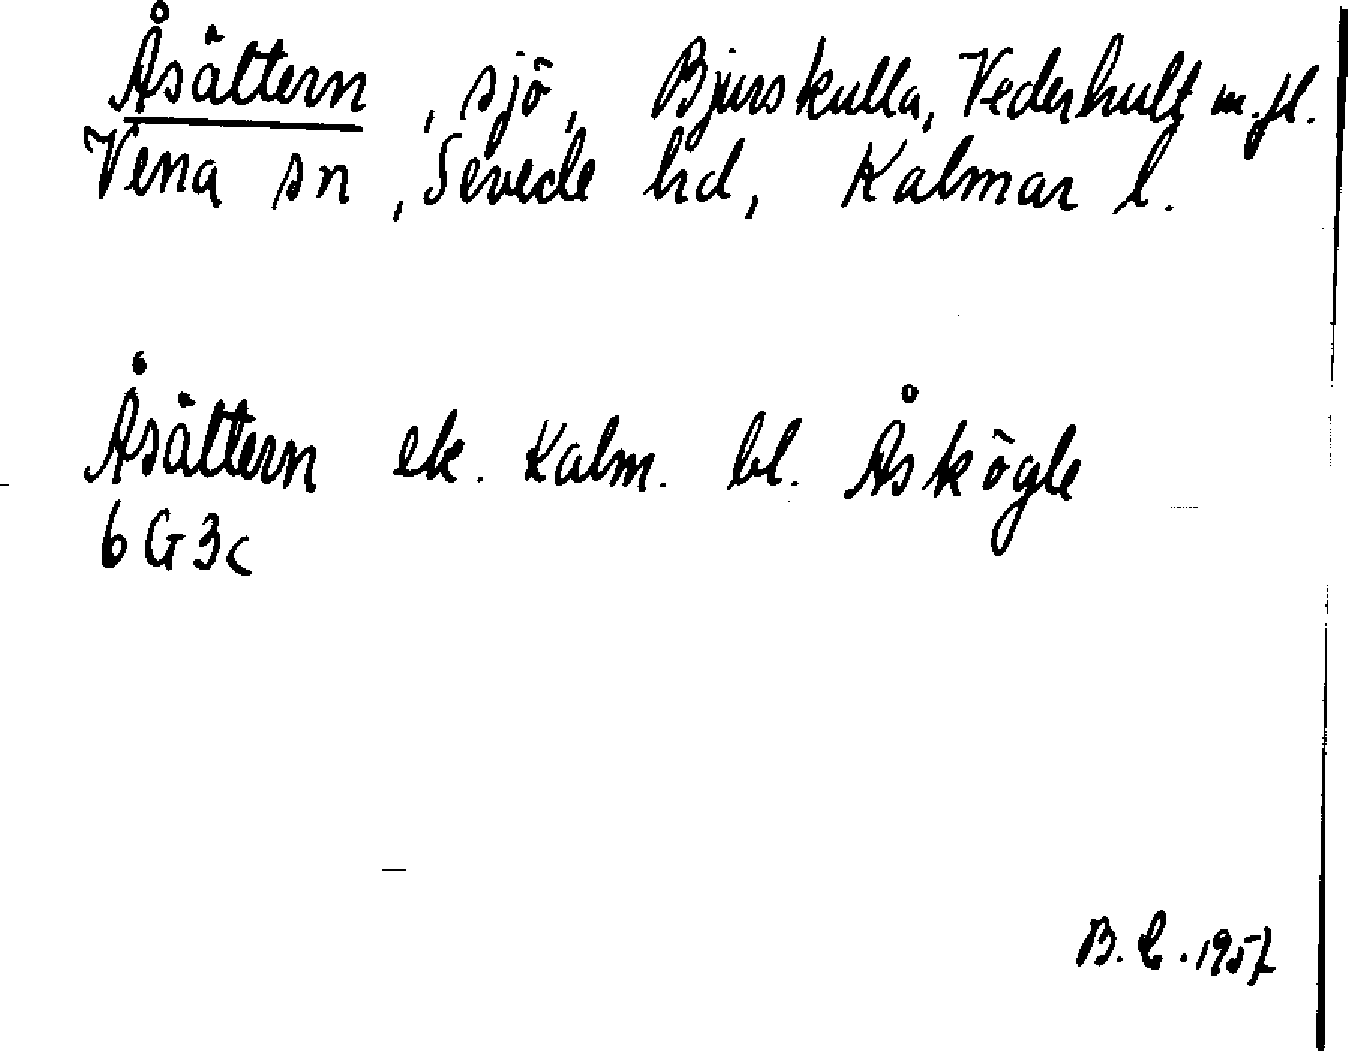 Åsättern, sjö, Bjurskulla, Vederhult m.fl.
Vena sn, Sevede hd, Kalmar l.
Åsättern ek. Kalm. bl. Åskögle
6G3c
B.L. 1957